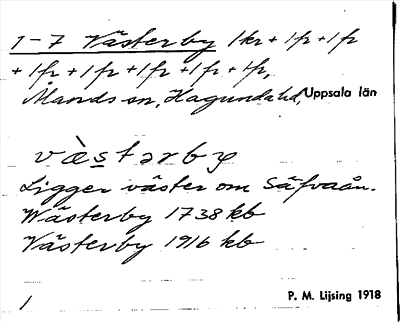 1-7 Västerby 1kr + 1fr + 1fr
+ 1fr + 1fr + 1fr + 1fr + 1fr,
Ålands sn, Hagunda hd, Uppsala län
væ̀stərbφ
Ligger väster om Säfvaån.
Wästerby 1738 kb
Västerby 1916 kb
1
P. M. Lijsing 1918